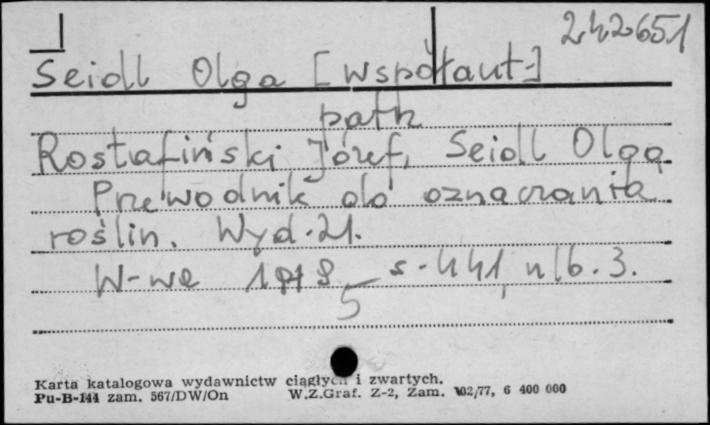 242651
Seidl Olga [współaut.]
patrz
Rostafiński Józef, Seidl Olga
Przewodnik do oznaczania
roślin. Wyd. 21.
W-wa s. 441, nlb. 3.
5
Karta katalogowa wydawnictw ciągłych i zwartych.
Pu-B-144 zam. 567/DW/On W.Z.Graf. Z-2, Zam. 102/77, 6 400 000